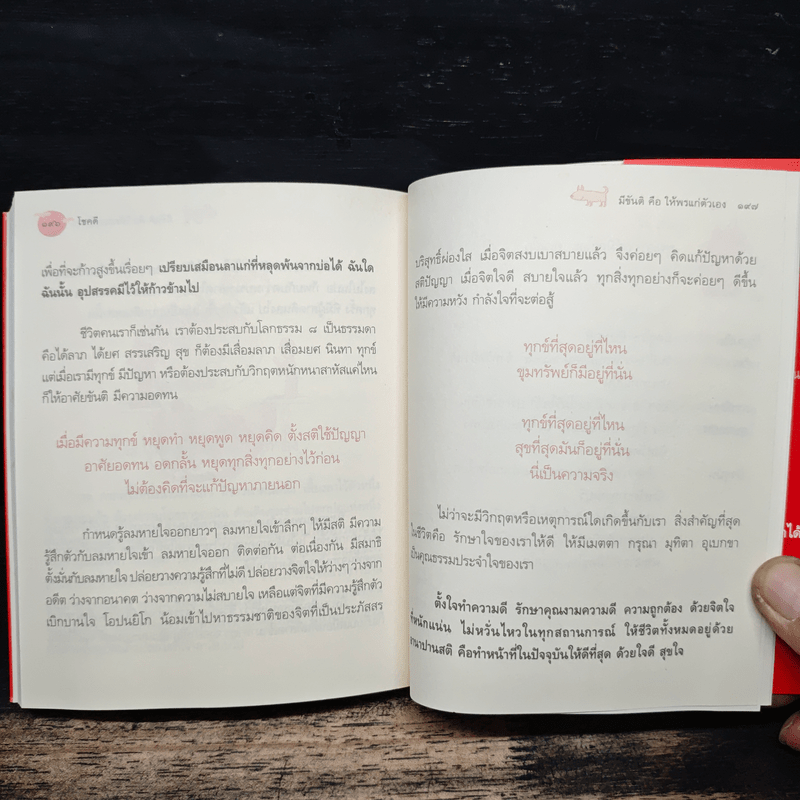 ๑๙๖ โชคดี
เพื่อที่จะก้าวสูงขึ้นเรื่อยๆ เปรียบเสมือนลาแก่ที่หลุดพ้นจากบ่อได้ ฉันใด
ฉันนั้น อุปสรรคมีไว้ให้ก้าวข้ามไป
ชีวิตคนเราก็เช่นกัน เราต้องประสบกับโลกธรรม ๘ เป็นธรรมดา
คือได้ลาภ ได้ยศ สรรเสริญ สุข ก็ต้องมีเสื่อมลาภ เสื่อมยศ นินทา ทุกข์
แต่เมื่อเรามีทุกข์ มีปัญหา หรือต้องประสบกับวิกฤตหนักหนาสาหัสแค่ไหน
ก็ให้อาศัยขันติ มีความอดทน
เมื่อมีความทุกข์ หยุดทำ หยุดพูด หยุดคิด ตั้งสติใช้ปัญญา
อาศัยอดทน อดกลั้น หยุดทุกสิ่งทุกอย่างไว้ก่อน
ไม่ต้องคิดที่จะแก้ปัญหาภายนอก
กำหนดรู้ลมหายใจออกยาวๆ ลมหายใจเข้าลึกๆ ให้มีสติ มีความ
รู้สึกตัวกับลมหายใจเข้า ลมหายใจออก ติดต่อกัน ต่อเนื่องกัน มีสมาธิ
ตั้งมั่นกับลมหายใจ ปล่อยวางความรู้สึกที่ไม่ดี ปล่อยวางจิตใจให้ว่างๆ ว่างจาก
อดีต ว่างจากอนาคต ว่างจากความไม่สบายใจ เหลือแต่จิตที่มีความรู้สึกตัว
เบิกบานใจ โอปนยิโก น้อมเข้าไปหาธรรมชาติของจิตที่เป็นประภัสสร
มีขันติ คือ ให้พรแก่ตัวเอง ๑๙๗
บริสุทธิ์ผ่องใส เมื่อจิตสงบเบาสบายแล้ว จึงค่อยๆ คิดแก้ปัญหาด้วย
สติปัญญา เมื่อจิตใจดี สบายใจแล้ว ทุกสิ่งทุกอย่างก็จะค่อยๆ ดีขึ้น
ให้มีความหวัง กำลังใจที่จะต่อสู้
ทุกข์ที่สุดอยู่ที่ไหน
ขุมทรัพย์ก็มีอยู่ที่นั่น
ทุกข์ที่สุดอยู่ที่ไหน
สุขที่สุดมันก็อยู่ที่นั่น
นี่เป็นความจริง
ไม่ว่าจะมีวิกฤตหรือเหตุการณ์ใดเกิดขึ้นกับเรา สิ่งสำคัญที่สุด
ในชีวิตคือ รักษาใจของเราให้ดี ให้มีเมตตา กรุณา มุทิตา อุเบกขา
เป็นคุณธรรมประจำใจของเรา
ตั้งใจทำความดี รักษาคุณงามความดี ความถูกต้อง ด้วยจิตใจ
ที่หนักแน่น ไม่หวั่นไหวในทุกสถานการณ์ ให้ชีวิตทั้งหมดอยู่ด้วย
อานาปานสติ คือทำหน้าที่ในปัจจุบันให้ดีที่สุด ด้วยใจดี สุขใจ